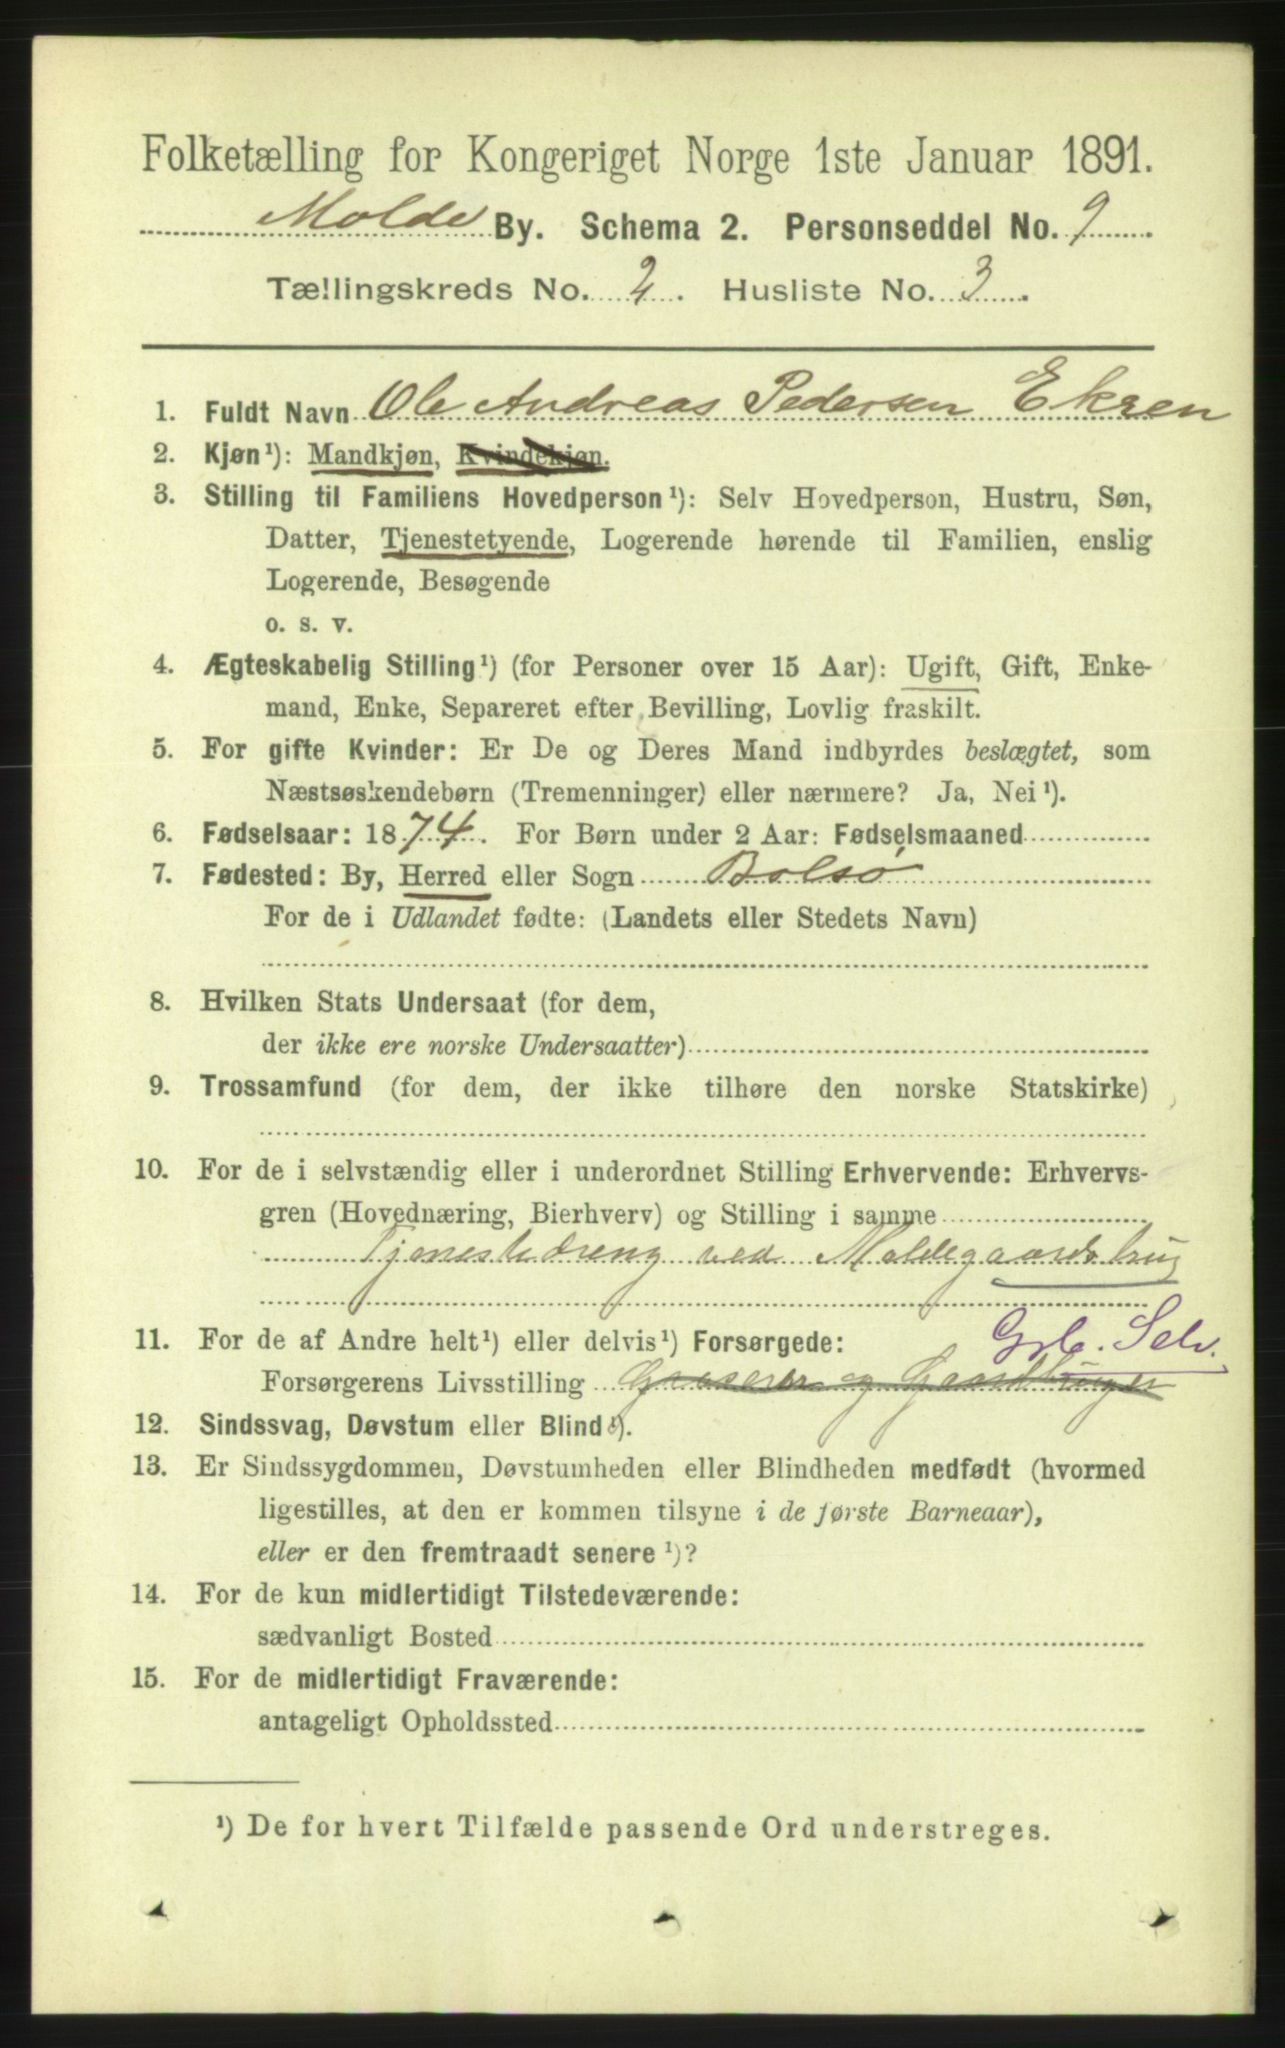 Folketælling for Kongeriget Norge 1ste Januar 1891.
Molde By. Schema 2. Personseddel No. 9
Tællingskreds No. 2. Husliste No. 3.
1. Fuldt Navn Ole Andreas Pedersen Ekren
2. Kjøn¹): Mandkjøn, Kvindekjøn.
3. Stilling til Familiens Hovedperson¹): Selv Hovedperson, Hustru, Søn,
Datter, Tjenestetyende, Logerende hørende til Familien, enslig
Logerende, Besøgende
o. s. v.
4. Ægteskabelig Stilling¹) (for Personer over 15 Aar): Ugift, Gift, Enke-
mand, Enke, Separeret efter Bevilling, Lovlig fraskilt.
5. For gifte Kvinder: Er De og Deres Mand indbyrdes beslægtet, som
Næstsøskendebørn (Tremenninger) eller nærmere? Ja, Nei¹).
6. Fødselsaar: 1874. For Børn under 2 Aar: Fødselsmaaned
7. Fødested: By, Herred eller Sogn Bolsø
For de i Udlandet fødte: (Landets eller Stedets Navn)
8. Hvilken Stats Undersaat (for dem,
der ikke ere norske Undersaatter)
9. Trossamfund (for dem, der ikke tilhøre den norske Statskirke)
10. For de i selvstændig eller i underordnet Stilling Erhvervende: Erhvervs-
gren (Hovednæring, Bierhverv) og Stilling i samme
Tjenestedreng ved Moldegaards brug
11. For de af Andre helt¹) eller delvis¹) Forsørgede: Grb. Selv.
Forsørgerens Livsstilling og Gaardbruger
12. Sindssvag, Døvstum eller Blind¹).
13. Er Sindssygdommen, Døvstumheden eller Blindheden medfødt (hvormed
ligestilles, at den er kommen tilsyne i de første Barneaar),
eller er den fremtraadt senere¹)?
14. For de kun midlertidigt Tilstedeværende:
sædvanligt Bosted
15. For de midlertidigt Fraværende:
antageligt Opholdssted
¹) De for hvert Tilfælde passende Ord understreges.